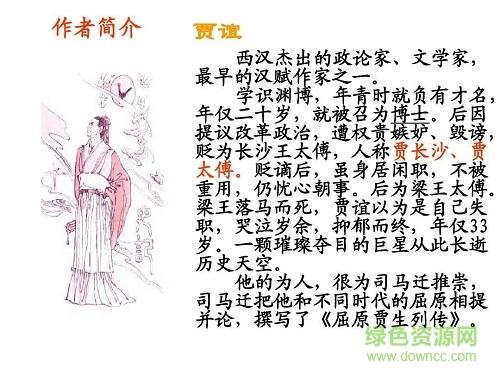 作者简介
贾谊
西汉杰出的政论家、文学家,
最早的汉赋作家之一。
学识渊博,年青时就负有才名,
年仅二十岁,就被召为博士。后因
提议改革政治,遭权贵嫉妒、毁谤,
贬为长沙王太傅,人称贾长沙、贾
太傅。贬谪后,虽身居闲职,不被
重用,仍忧心朝事。后为梁王太傅。
梁王落马而死,贾谊以为是自己失
职,哭泣岁余,抑郁而终,年仅33
岁。一颗璀璨夺目的巨星从此长逝
历史天空。
他的为人,很为司马迁推崇,
司马迁把他和不同时代的屈原相提
并论,撰写了《屈原贾生列传》。
绿色资源网
www.downcc.com